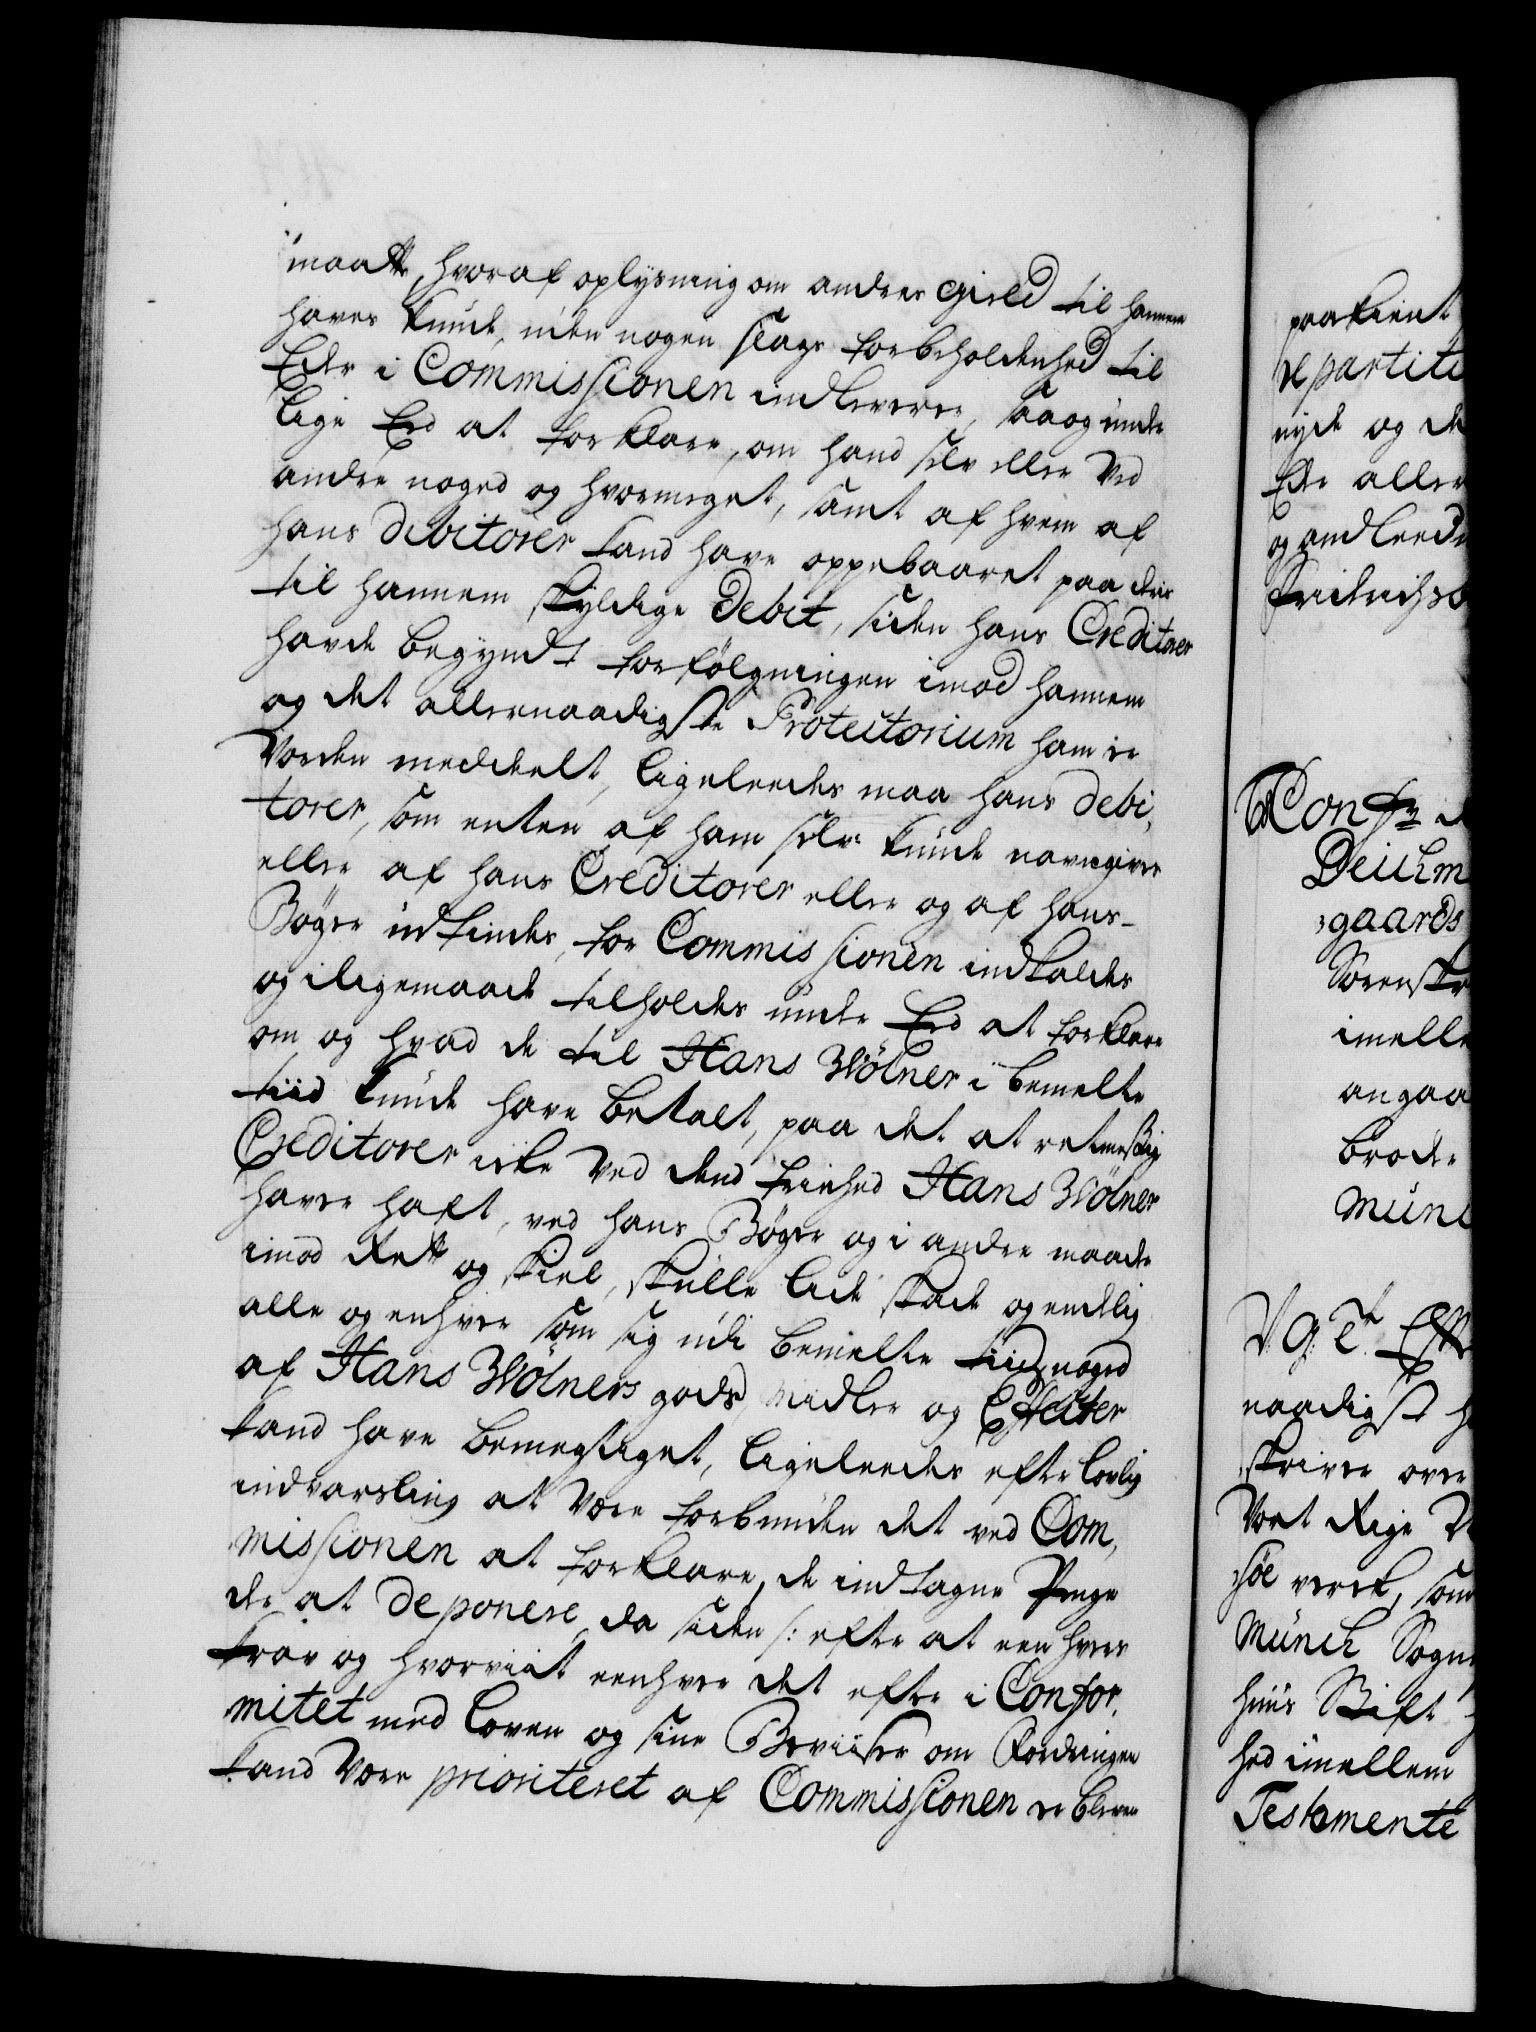 maatte, hvoraf oplysning om andres gield til hannem
haves kunde, uden nogen slags forbeholdenhed til
Eder i Commissionen indleverer, saa og under
lige Eed at forklare, om hand selv eller ved
andre noged og hvormeget, samt af hvem af
hans debitorer kand have oppebaaret paa deris
til hannem skyldige Debit, siden hans Creditorer
havde begyndt forfølgningen imod hannem
og det allernaadigste Protectorium ham er
vorden meddeelt, ligeleedes maa hans debi,
torer, som enten af ham selv kunde navngives
eller af hans Creditorer eller og af hans
Bøger udfindes, for Commissionen indkaldes
og iligemaade tilholdes under Eed at forklare
om og hvad de til Hans Wölner i bemelte
tiid kunde have betalt, paa det at retmessig
Creditorer icke ved dend friehed Hans Wölner
haver haft, ved hans Bøger og i andre maade
imod Rett og skiel, skulle lide skade og endelig
alle og enhver som sig udi bemelte tiid noged
af Hans Wölners gods, midler og Effecter
kand have bemegtiget, ligeleedes efter lovlig
indvarsling at være forbunden det ved Com,
missionen at forklare, de indtagne Penge
der at deponere, da siden /: efter at een hvers
krav og hvorviit eenhver det efter i Confor,
mitet med loven og sine Beviiser om Fordringen
kand være prioriteret af Commissionen er bleven
paakient
repartiti
nyde og de
Eder aller
og andleed
Friderichsb
Conf:
Deichm
gaards
Sorenskr
imelle
angaa
brode
Münc
V. G. T.
naadigst h
skriver over
Vort Rige N
søe verck, som
Münch Sogne
huus Stift
hed imellem
Testamente